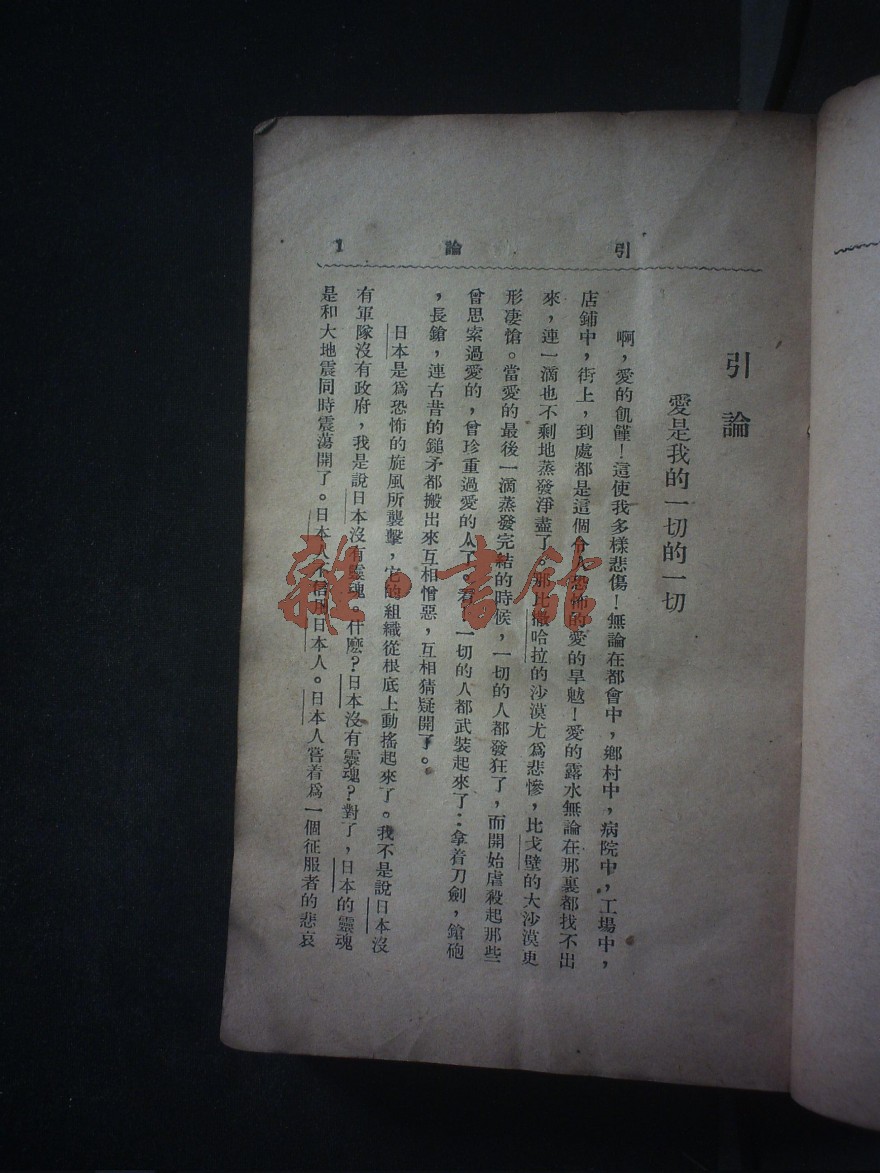 引論 1
引論
愛是我的一切的一切
啊，愛的飢饉！這使我多樣悲傷！無論在都會中，鄉村中，病院中，工場中，
店鋪中，街上，到處都是這個令人恐怖的愛的旱魃！愛的露水無論在那裏都找不出
來，連一滴也不剩地蒸發淨盡了。那比撒哈拉的沙漠尤爲悲慘，比戈壁的大沙漠更
形凄愴。當愛的最後一滴蒸發完結的時候，一切的人都發狂了，而開始虐殺起那些
曾思索過愛的，曾珍重過愛的人了。看！一切的人都武裝起來了：拿着刀劍，鎗砲
，長鎗，連古昔的鎚矛都搬出來互相憎惡，互相猜疑開了。
日本是爲恐怖的旋風所襲擊，它的組織從根底上動搖起來了。我不是說日本沒
有軍隊沒有政府，我是說日本沒有靈魂。什麼？日本沒有靈魂？對了，日本的靈魂
是和大地震同時震蕩開了。日本人不信用日本人。日本人嘗着爲一個征服者的悲哀
雜·書館